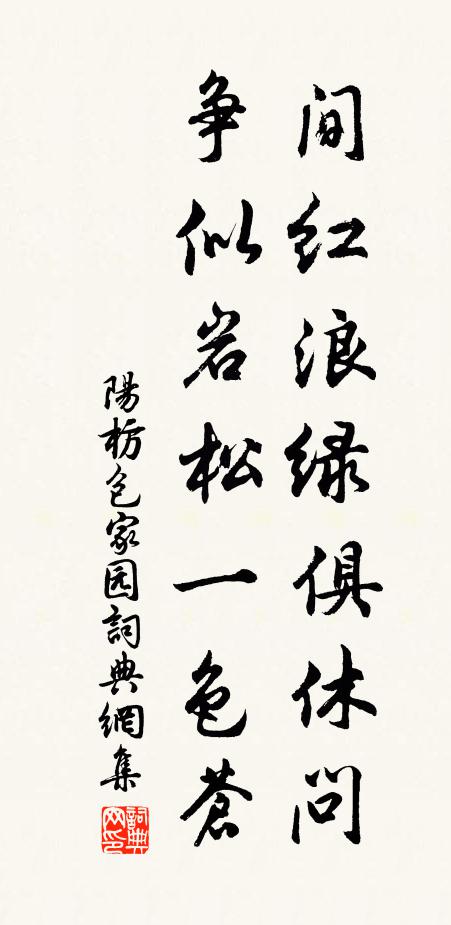 间红浪绿俱休问
争似岩松一色苍
陽枋色家园詞典網集
詞典网印